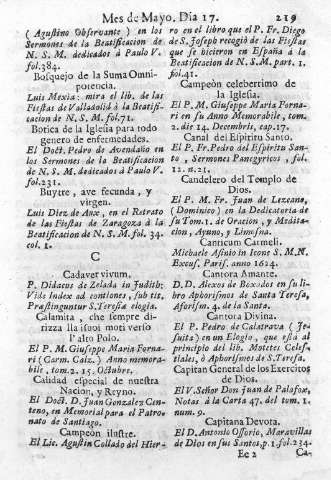 Mes de Mayo. Dia 17. 219
(Agustino Observante) en los
Sermones de la Beatificacion de
N. S. M. dedicados à Paulo V.
fol. 384.
Bosquejo de la Suma Omni-
potencia.
Luis Mexìa: mira el lib. de las
Fiestas de Valladolid à la Beatifi-
cacion de N. S. M. fol. 71.
Botica de la Iglesia para todo
genero de enfermedades.
El Doct. Pedro de Avendaño en
los Sermones de la Beatificacion
de N. S. M. dedicados à Paulo V.
fol. 231.
Buytre, ave fecunda, y
virgen.
Luis Diez de Aux, en el Retrato
de las Fiestas de Zaragoza à la
Beatificacion de N. S. M. fol. 34.
col. 1.
C
Cadaver vivum.
P. Didacus de Zelada in Judith:
Vide Index ad contiones, sub tit.
Præstinguntur S. Teresiæ elogia.
Calamita, che sempre di-
rizza lla suoi moti verso
l'alto Polo.
El P. M. Giuseppe Maria Fornari
(Carm. Calz.) Anno memora-
bile, tom. 2. 15. Octubre.
Calidad especial de nuestra
Nacion, y Reyno.
El Doct. D. Juan Gonzalez Cen-
teno, en Memorial para el Patro-
nato de Santiago.
Campeòn ilustre.
El Lic. Agustin Collado del Hier-
ro en el libro que el P. Fr. Diego
de S. Joseph recogiò de las Fiestas
que se hicieron en España à la
Beatificacion de N. S. M. part. 1.
fol. 41.
Campeòn celeberrimo de
la Iglesia.
El P. M. Giuseppe Maria Forna-
ri en su Anno Memorabile, tom.
2. die 14. Decembris, cap. 17.
Canal del Espiritu Santo.
El P. Fr. Pedro del Espiritu San-
to, Sermones Panegyricos, fol.
12. n. 21.
Candelero del Templo de
Dios.
El P. M. Fr. Juan de Lezana,
(Dominico) en la Dedicatoria de
su Tom. 1. de Oracion, y Medita-
cion, Ayuno, y Limosna.
Canticum Carmeli.
Michaele Asinio in Icone S. M. N.
Excus. Paris. anno 1624.
Cantora Amante.
D. D. Alexos de Boxados en su li-
bro Aphorismos de Santa Teresa,
Aforism. 4. de la Santa.
Cantora Divina.
El P. Pedro de Calatrava (Je-
suita) en un Elogio, que està al
principio del lib. Motetes Celes-
tiales, ò Aphorismos de S. Teresa.
Capitan General de los Exercitos
de Dios.
El V. Señor Don Juan de Palafox,
Notas à la Carta 47. del tom. 1.
num. 9.
Capitana Devota.
El D. Antonio Ossorio, Maravillas
de Dios en sus Santos, p. 1. fol. 234.
Ee 2 Ca-